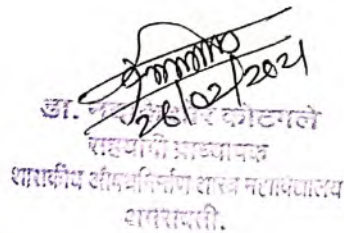 26/02/2021
डा. कोटगले
सहयोगी प्राध्यापक
शासकीय औषधनिर्माण शास्त्र महाविद्यालय
अमरावती.